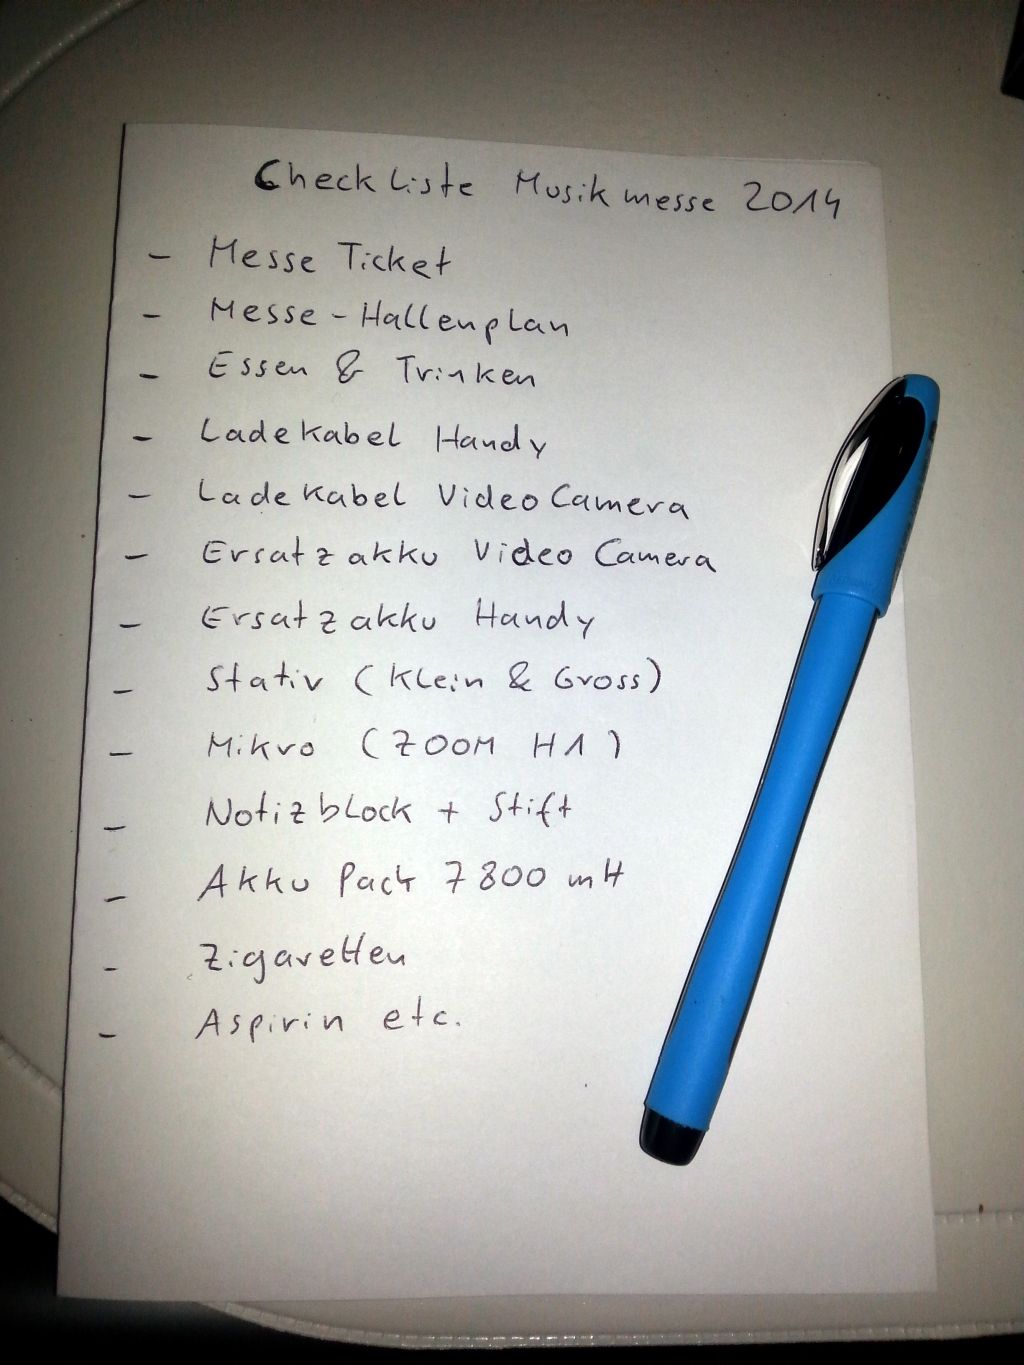 Checkliste Musikmesse 2014
- Messe Ticket
- Messe-Hallenplan
- Essen & Trinken
- Ladekabel Handy
- Ladekabel VideoCamera
- Ersatzakku Video Camera
- Ersatzakku Handy
- Stativ (Klein & Gross)
- Mikro (ZOOM H1)
- Notizblock + Stift
- Akku Pack 7800 mH
- Zigaretten
- Aspirin etc.